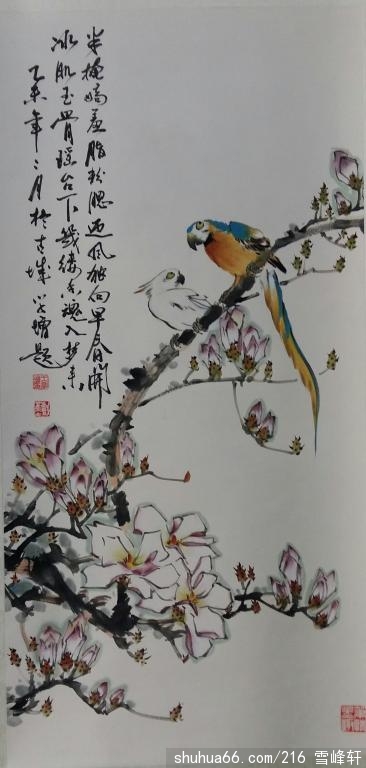 半掩娇羞脂粉腮迎风独向早春开
冰肌玉骨瑶台下几缕香魂入梦来
乙未年二月于古城
题
shuhua66.com/216 雪峰轩